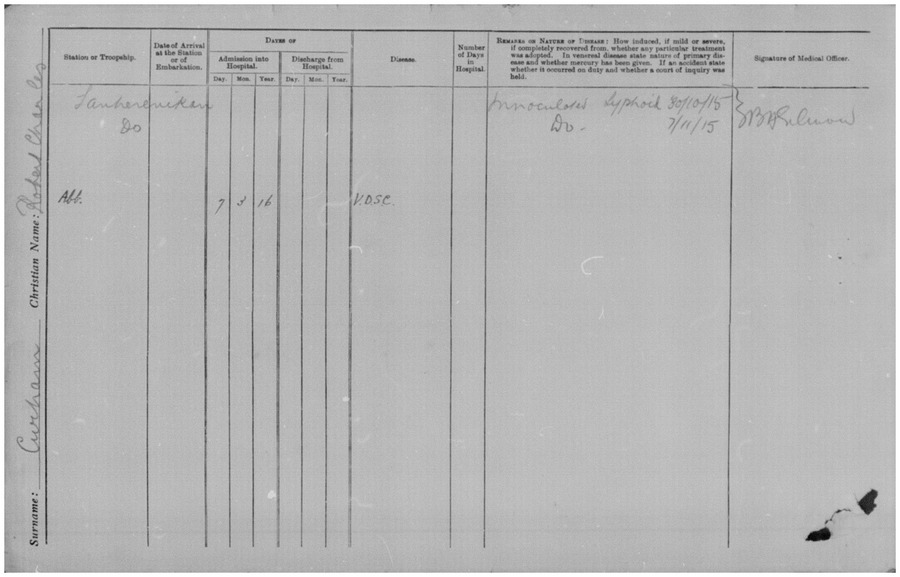 Surname: Curham Christian Name: Robert Charles
Station or Troopship.
Date of Arrival
at the Station
or of
Embarkation.
Dates of
Admission into
Hospital.
Discharge from
Hospital.
Day. Mon. Year. Day. Mon. Year.
Disease.
Number
of Days
in
Hospital.
Remarks on Nature of Disease: How induced, if mild or severe,
if completely recovered from, whether any particular treatment
was adopted. In venereal disease state nature of primary dis-
ease and whether mercury has been given. If an accident state
whether is occurred on duty and whether a court of inquiry was
held.
Signature of Medical Officer.
Tauherenikau Innoculated Typhoid 30/10/15
Do Do. 7/11/15
Abb. 7 3 16 V.D.S.C.